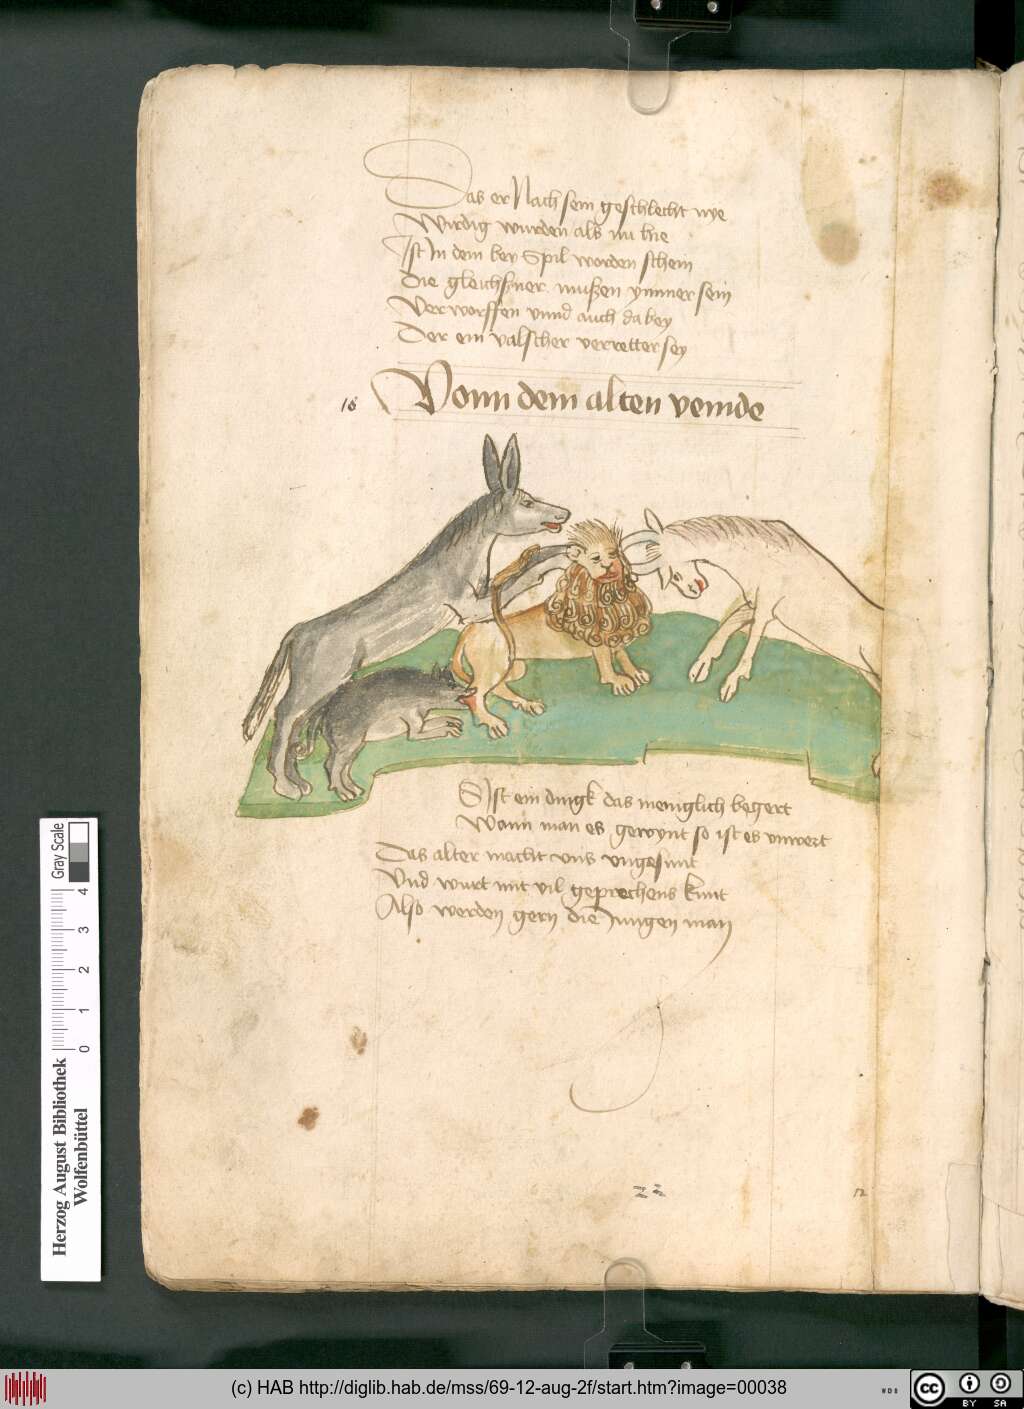 Das er Nach sein geschlecht nye
Wirdig wurden als nu hie
Ist In dem bey Spil worden schein
Die gleichßner mußen ymmer sein
Verworffen vnnd auch da bey
Der ein valscher verretter sey
18 Vonn dem alten veinde
Es Ist ein dingk das meniglich begert
Wann man es gewynt so ist es vnwert
Das alter macht vns vngesunt
Vnd wurt mit vil geprechens kunt
Also werden gern die Jungen man
22
12
Gray Scale
4
3
2
1
0
Herzog August Bibliothek
Wolfenbüttel
(c) HAB http://diglib.hab.de/mss/69-12-aug-2f/start.htm?image=00038
WDB
cc
BY
SA